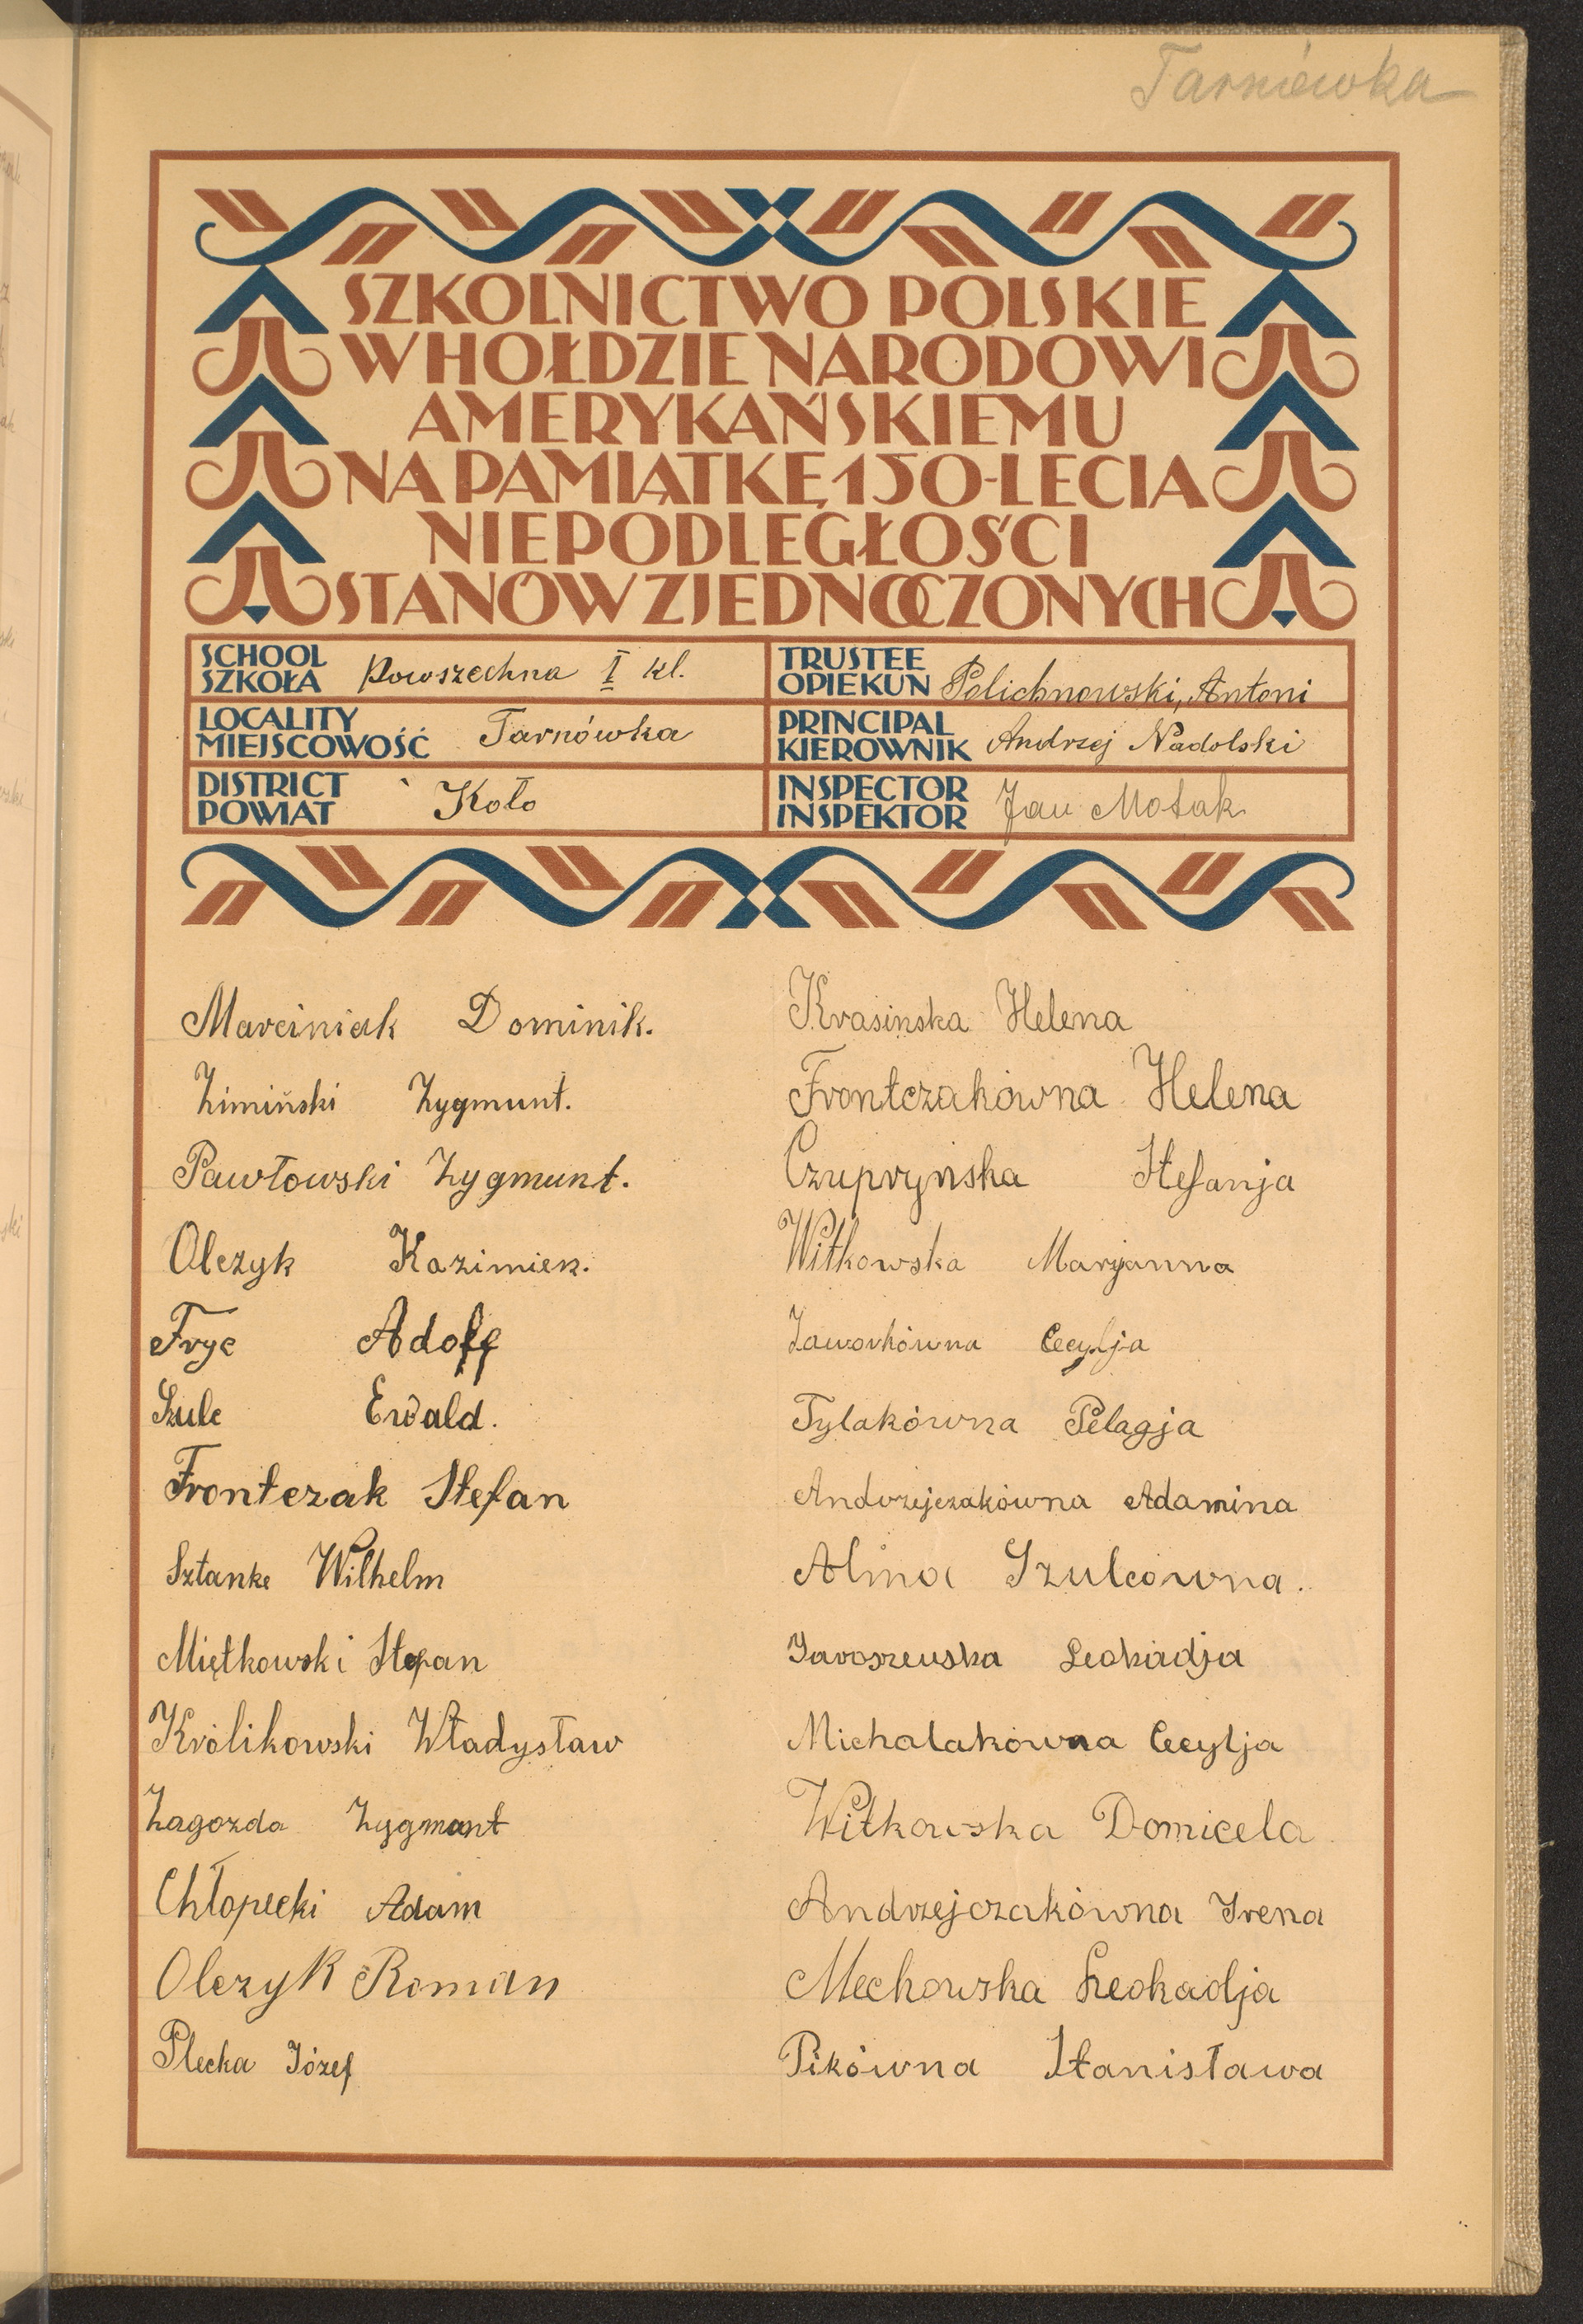 Tarnówka
SZKOLNICTWO POLSKIE
W HOŁDZIE NARODOWI
AMERYKAŃSKIEMU
NA PAMIĄTKĘ 150-LECIA
NIEPODLEGŁOŚCI
STANÓW ZJEDNOCZONYCH
SCHOOL
SZKOŁA Powszechna I kl.
LOCALITY
MIEJSCOWOŚĆ Tarnówka
DISTRICT
POWIAT Koło
TRUSTEE
OPIEKUN Polichnowski, Antoni
PRINCIPAL
KIEROWNIK Andrzej Nadolski
INSPECTOR
INSPEKTOR Jan Motak
Marciniak Dominik.
Zimiński Zygmunt.
Pawłowski Zygmunt.
Olczyk Kazimierz.
Fryc Adolf
Szulc Ewald.
Frontczak Stefan
Sztanke Wilhelm
Miętkowski Stefan
Królikowski Władysław
Zagozda Zygmunt
Chłopecki Adam
Olczyk Roman
Plecka Józef
Krasinska Helena
Frontczakówna Helena
Czupryńska Stefanja
Witkowska Maryanna
Jaworkówna Cecylja
Tylakówna Pelagja
Andrzejczakówna Adamina
Alina Szulcówna.
Jaroszewska Leokadja
Michalakówna Cecylja
Witkowska Domicela
Andrzejczakówna Irena
Mechowska Leokadja
Pikówna Stanisława